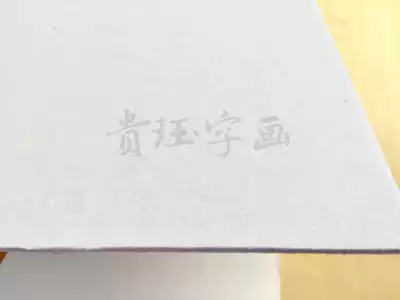 贵珏字画